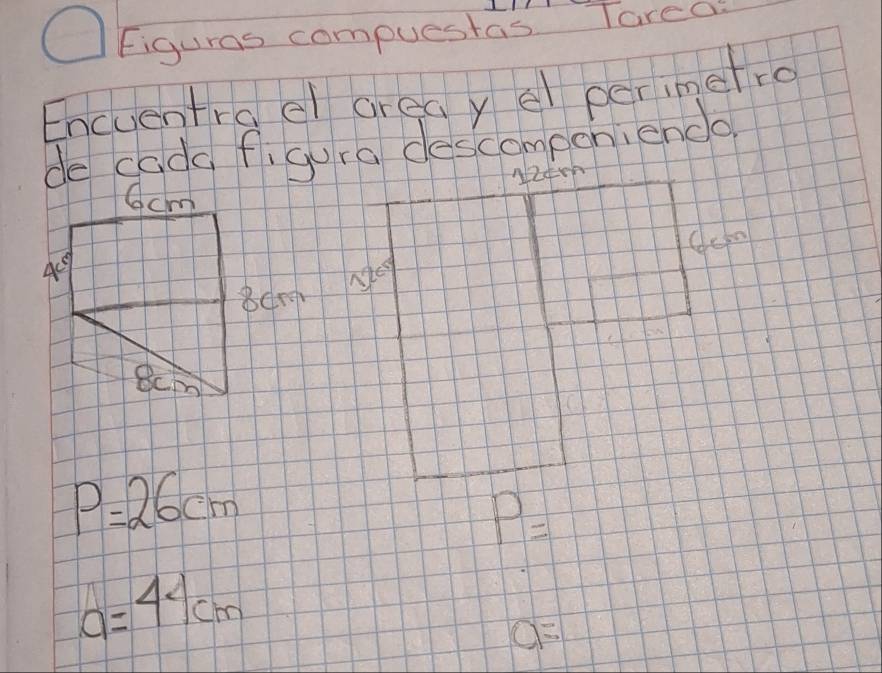 Figuras compuestas Tarea:
Encuentra el area y el perimetro
de cada figura descomponiendo.
6cm
12cm
4cm
8cm
12cm
6cm
8cm
P=26cm
P=
a=44cm
a=